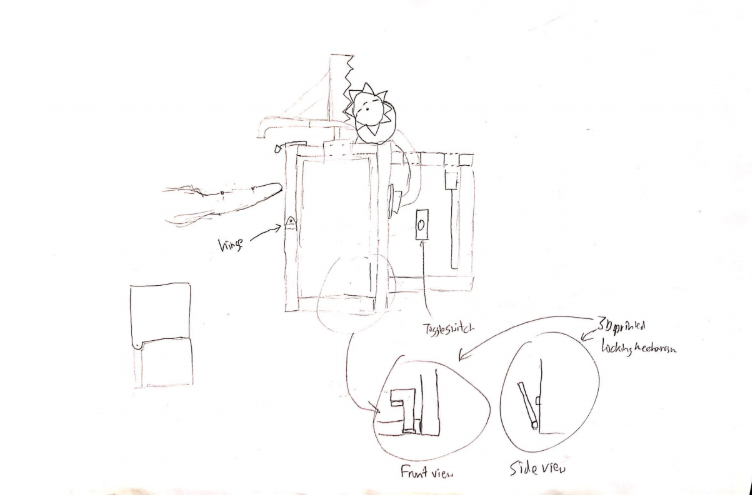 hinge
Toggle switch
3D printed
Locking mechanism
Front view
Side view